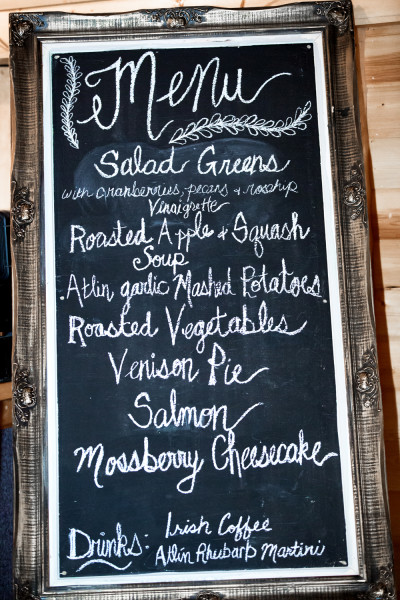 Menu
Salad Greens
with cranberries, pecans & rosehip
Vinaigrette
Roasted Apple & Squash
Soup
Atlin garlic Mashed Potatoes
Roasted Vegetables
Venison Pie
Salmon
Mossberry Cheesecake
Drinks: Irish Coffee
Atlin Rhubarb Martini